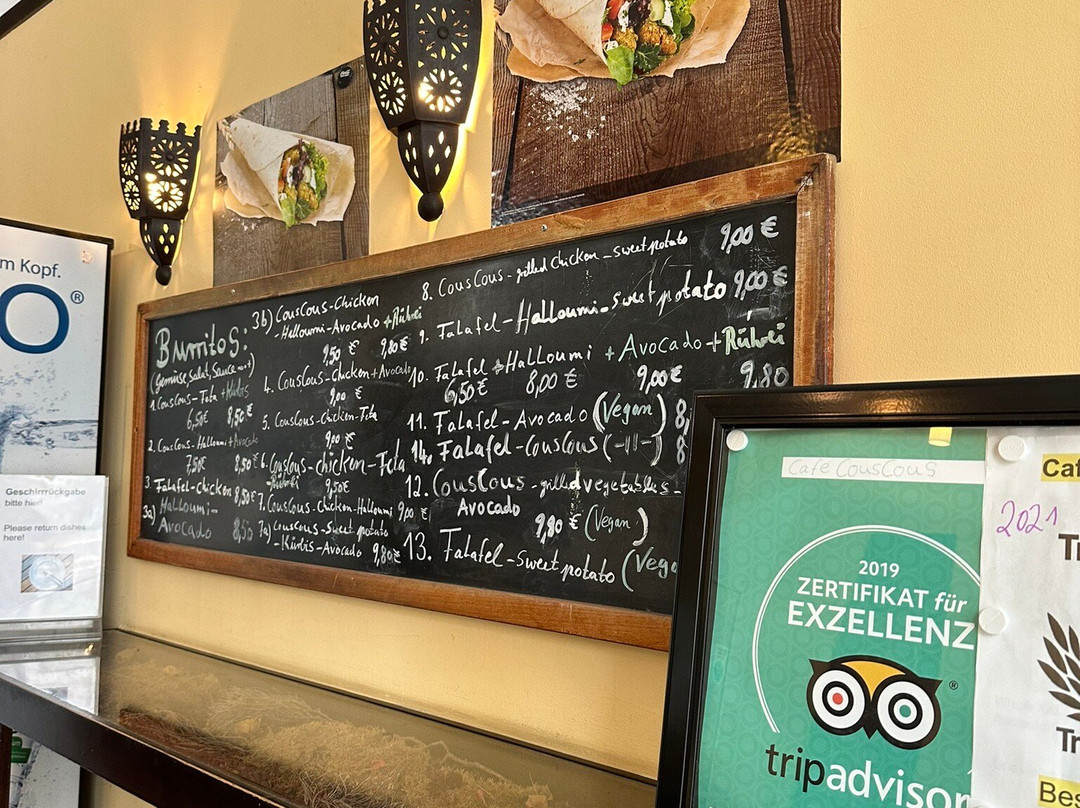 m Kopf.
O®
Geschirrrückgabe
bitte hier!
Please return dishes
here!
Burritos:
(Gemüse, Salat, Sauce ...)
1. CousCous-Feta + Kürbis
6,50€ 8,50€
2. CousCous-Halloumi + Avocado
7,50€ 8,50€
3. Falafel-chicken 8,50€
3a) Halloumi-
Avocado 8,50
3b) CousCous-Chicken
-Halloumi-Avocado + Rührei
9,50 € 9,80 €
4. CousCous-Chicken + Avocado
9,00 €
5. CousCous-Chicken-Feta
9,00 €
6. CousCous-chicken-Feta
9,50€
7. CousCous-Chicken-Halloumi 9,00 €
7a) CousCous-Sweet potato
-Kürbis-Avocado 9,80€
8. CousCous-grilled Chicken-sweet potato 9,00 €
9. Falafel-Halloumi-Sweet potato 9,00 €
10. Falafel + Halloumi + Avocado + Rührei
6,50€ 8,00 € 9,00€ 9,80
11. Falafel-Avocado (Vegan) 8,
14. Falafel-CousCous (-11-) 8
12. CousCous-grilled vegetables-
Avocado
9,80 € (Vegan)
13. Falafel-Sweet potato (Vega
Cafe CousCous
2019
ZERTIFIKAT für
EXZELLENZ
®
tripadvisor
Caf
2021
Tr
Tr
Bes